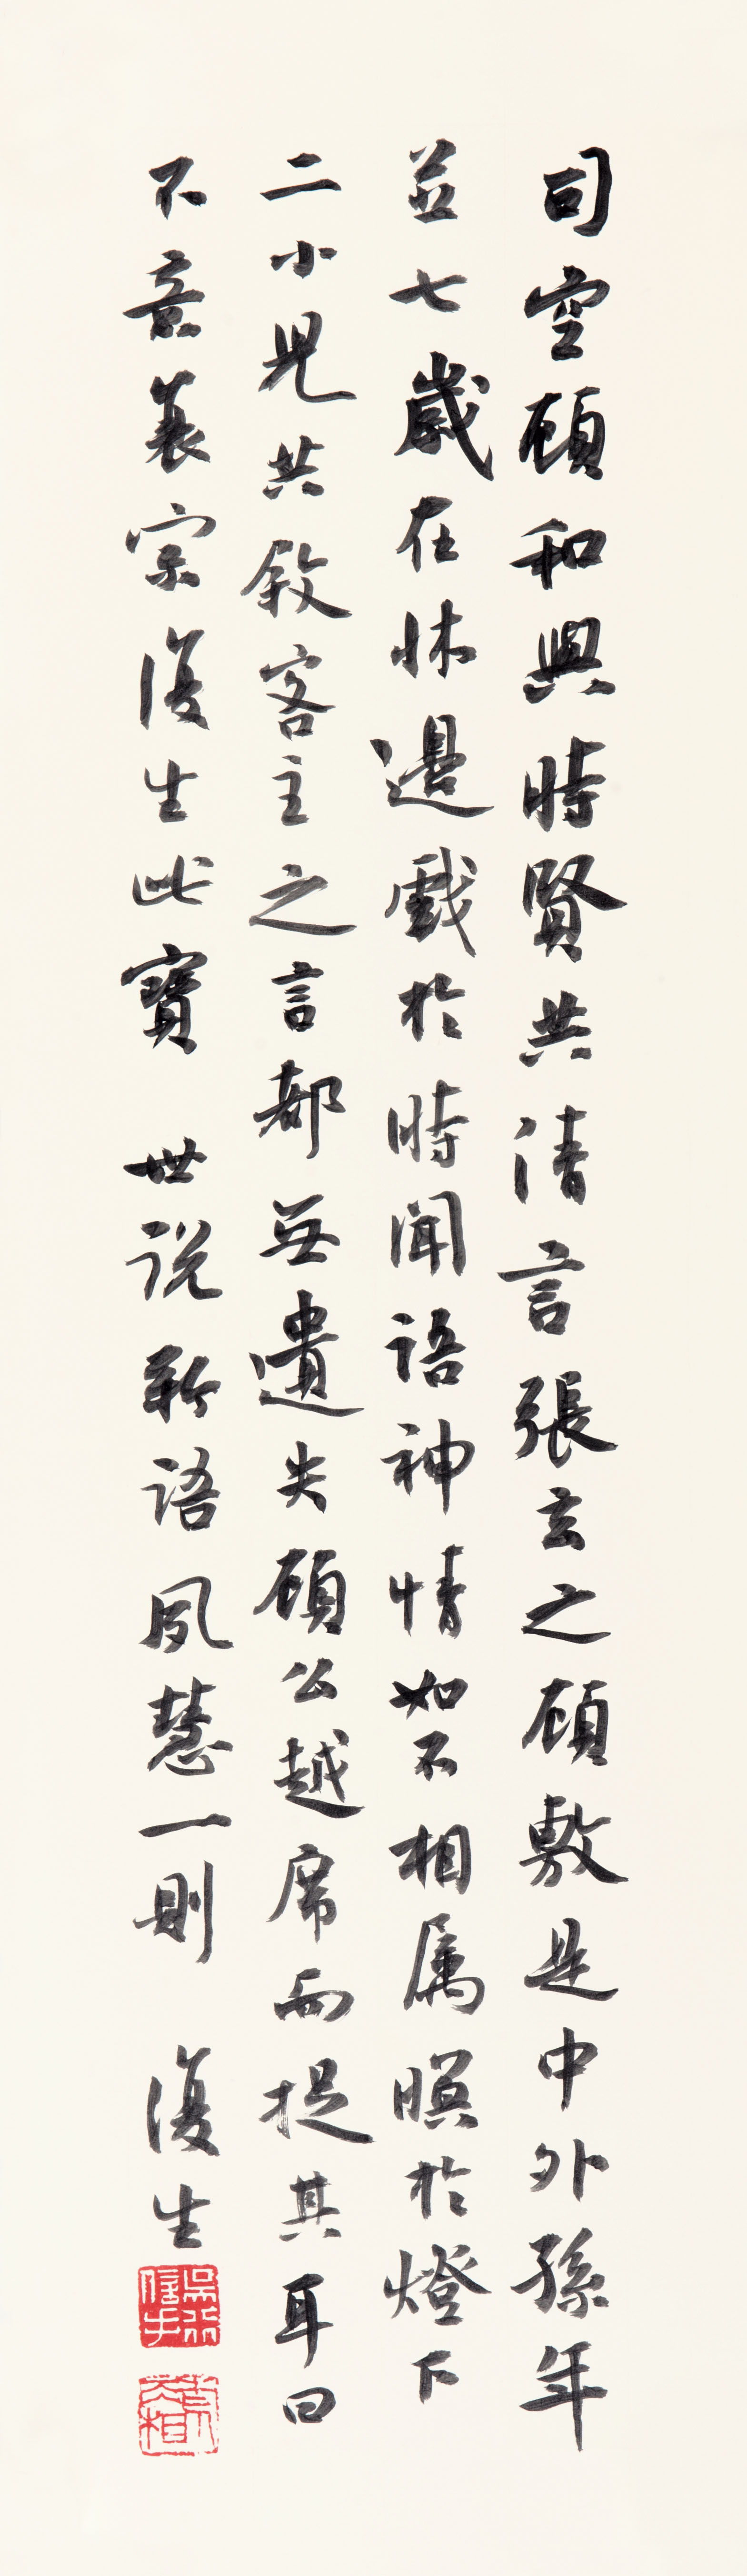 司空顧和與時賢共清言張玄之顧敷是中外孫年
並七歲在牀邊戲於時聞語神情如不相属瞑於燈下
二小兒共敘客主之言都無遺失顧公越席而提其耳曰
不意衰宗復生此寶 世说新语夙慧一則 復生